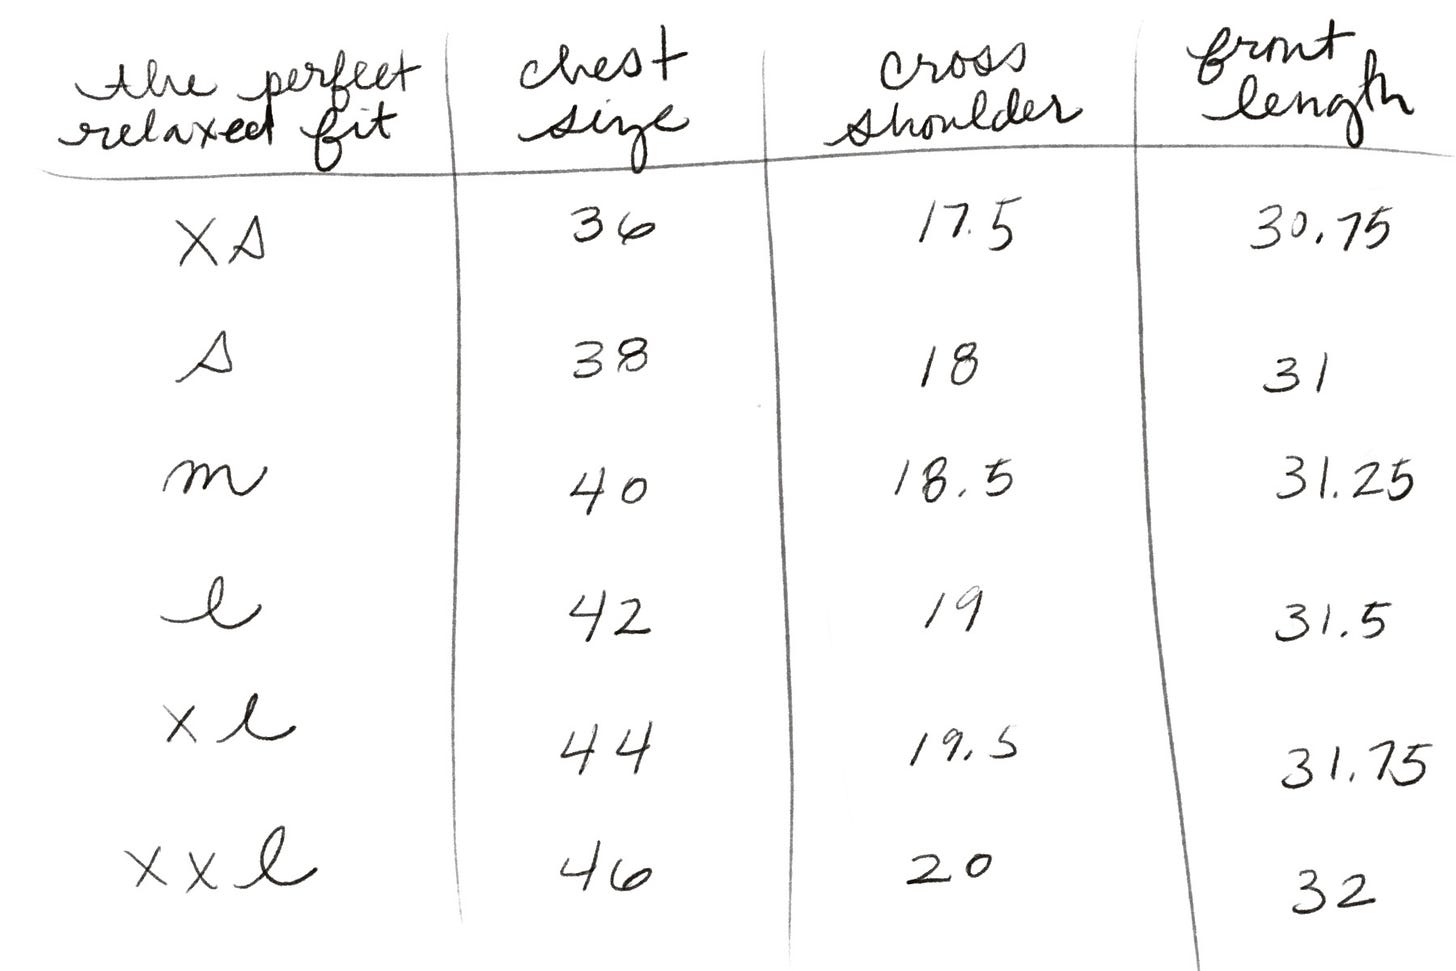 the perfect relaxed fit chest size cross shoulder front length
xs 36 17.5 30.75
s 38 18 31
m 40 18.5 31.25
l 42 19 31.5
xl 44 19.5 31.75
xxl 46 20 32